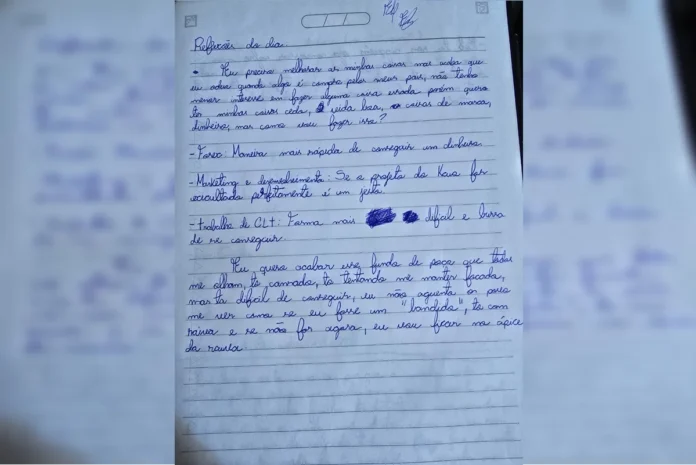 Reflexões do dia
• Eu preciso melhorar as minhas coisas mas acaba que
eu odeio quando algo é compro pelos meus pais, não tenho
menor interesse em fazer alguma coisa errada porém quero
ter minhas coisas cedo, vida boa, coisas de marca,
dinheiro, mas como vou fazer isso?
- Maneira mais rápida de conseguir um dinheiro
- Marketing e desenvolvimento: Se o projeto do for
perfeitamente é um jeito.
- trabalho de CLT: Forma mais difícil e
de se conseguir.
Eu quero acabar esse fundo de poço que todos
me olham, to cansado, to tentando me manter focado,
mas ta difícil de conseguir, eu não aguento os
me ver como se eu fosse um "bandido", to com
raiva e se não for agora, eu vou ficar no ápice
da